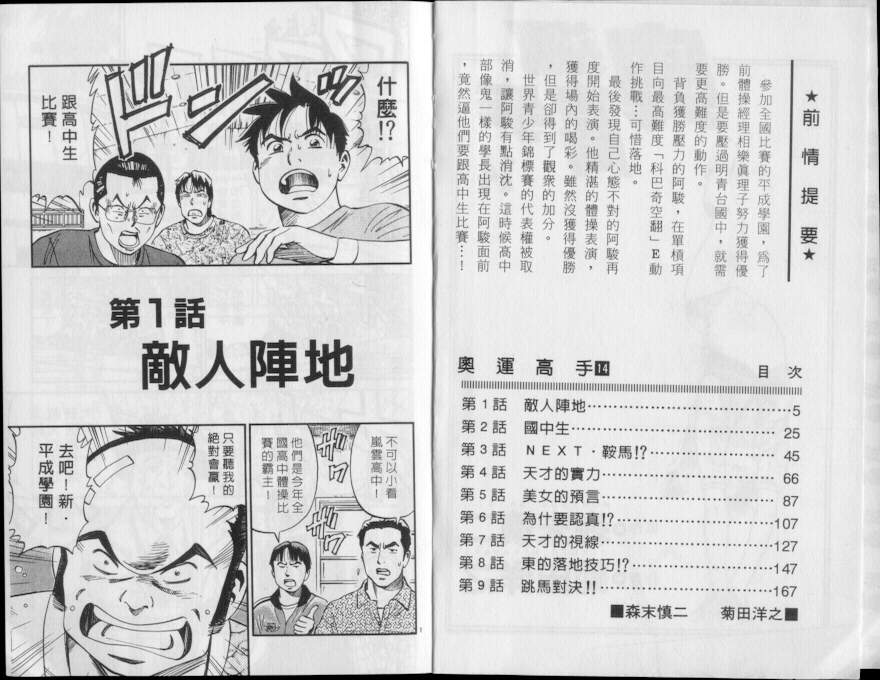 ★前情提要★
參加全國比賽的平成學園，為了
前體操經理相樂眞理子努力獲得優
勝。但是要壓過明青台國中，就需
要更高難度的動作。
背負獲勝壓力的阿駿，在單槓項
目向最高難度「科巴奇空翻」E動
作挑戰…可惜落地。
最後發現自己心態不對的阿駿再
度開始表演。他精湛的體操表演，
獲得場內的喝彩。雖然沒獲得優勝
，但是卻得到了觀衆的加分。
世界青少年錦標賽的代表權被取
消，讓阿駿有點消沈。這時候高中
部像鬼一樣的學長出現在阿駿面前
，竟然逼他們要跟高中生比賽…！
奧運高手14
目次
第1話 敵人陣地………………………………5
第2話 國中生…………………………………25
第3話 NEXT．鞍馬!?……………………45
第4話 天才的實力……………………………66
第5話 美女的預言……………………………87
第6話 為什要認真!?………………………107
第7話 天才的視線…………………………127
第8話 東的落地技巧!?……………………147
第9話 跳馬對決!!…………………………167
■森末慎二 菊田洋之■
什麼!?
ドドン
跟高中生
比賽！
第1話
敵人陣地
不可以小看
嵐雲高中！
他們是今年全
國高中體操比
賽的霸主！
ザワ
ザワ
只要聽我的
絕對會贏！
去吧！新．
平成學園！